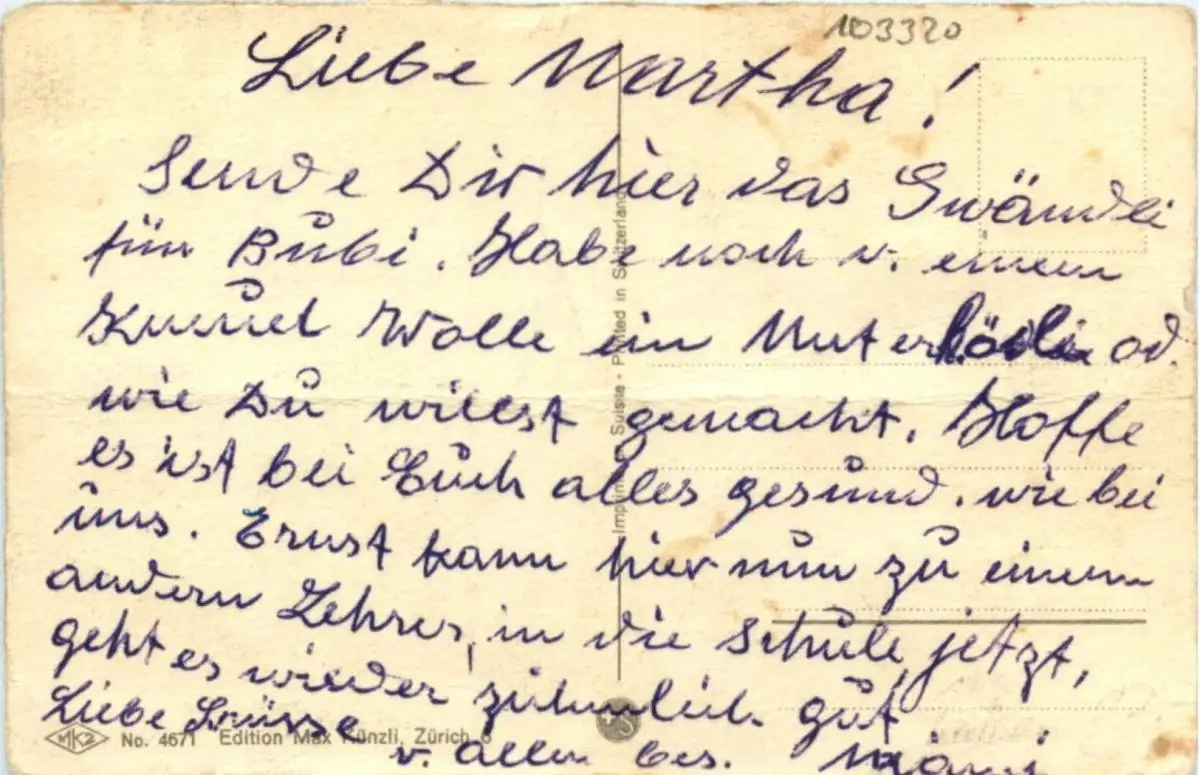 103320
Liebe Martha!
Sende Dir hier das Gwändli
für Bubi. Habe noch v. einem
Knäuel Wolle ein Unterhösli od.
wie Du willst gemacht. Hoffe
es ist bei Euch alles gesund. wie bei
uns. Ernst kann hier nun zu einem
andern Lehrer, in die Schule, jetzt,
geht es wieder ziemlich gut
Liebe Grüsse
v. allen bes.
Imprimé Suisse - Printed in Switzerland
MKZ No. 4671 Edition Max Künzli, Zürich 6